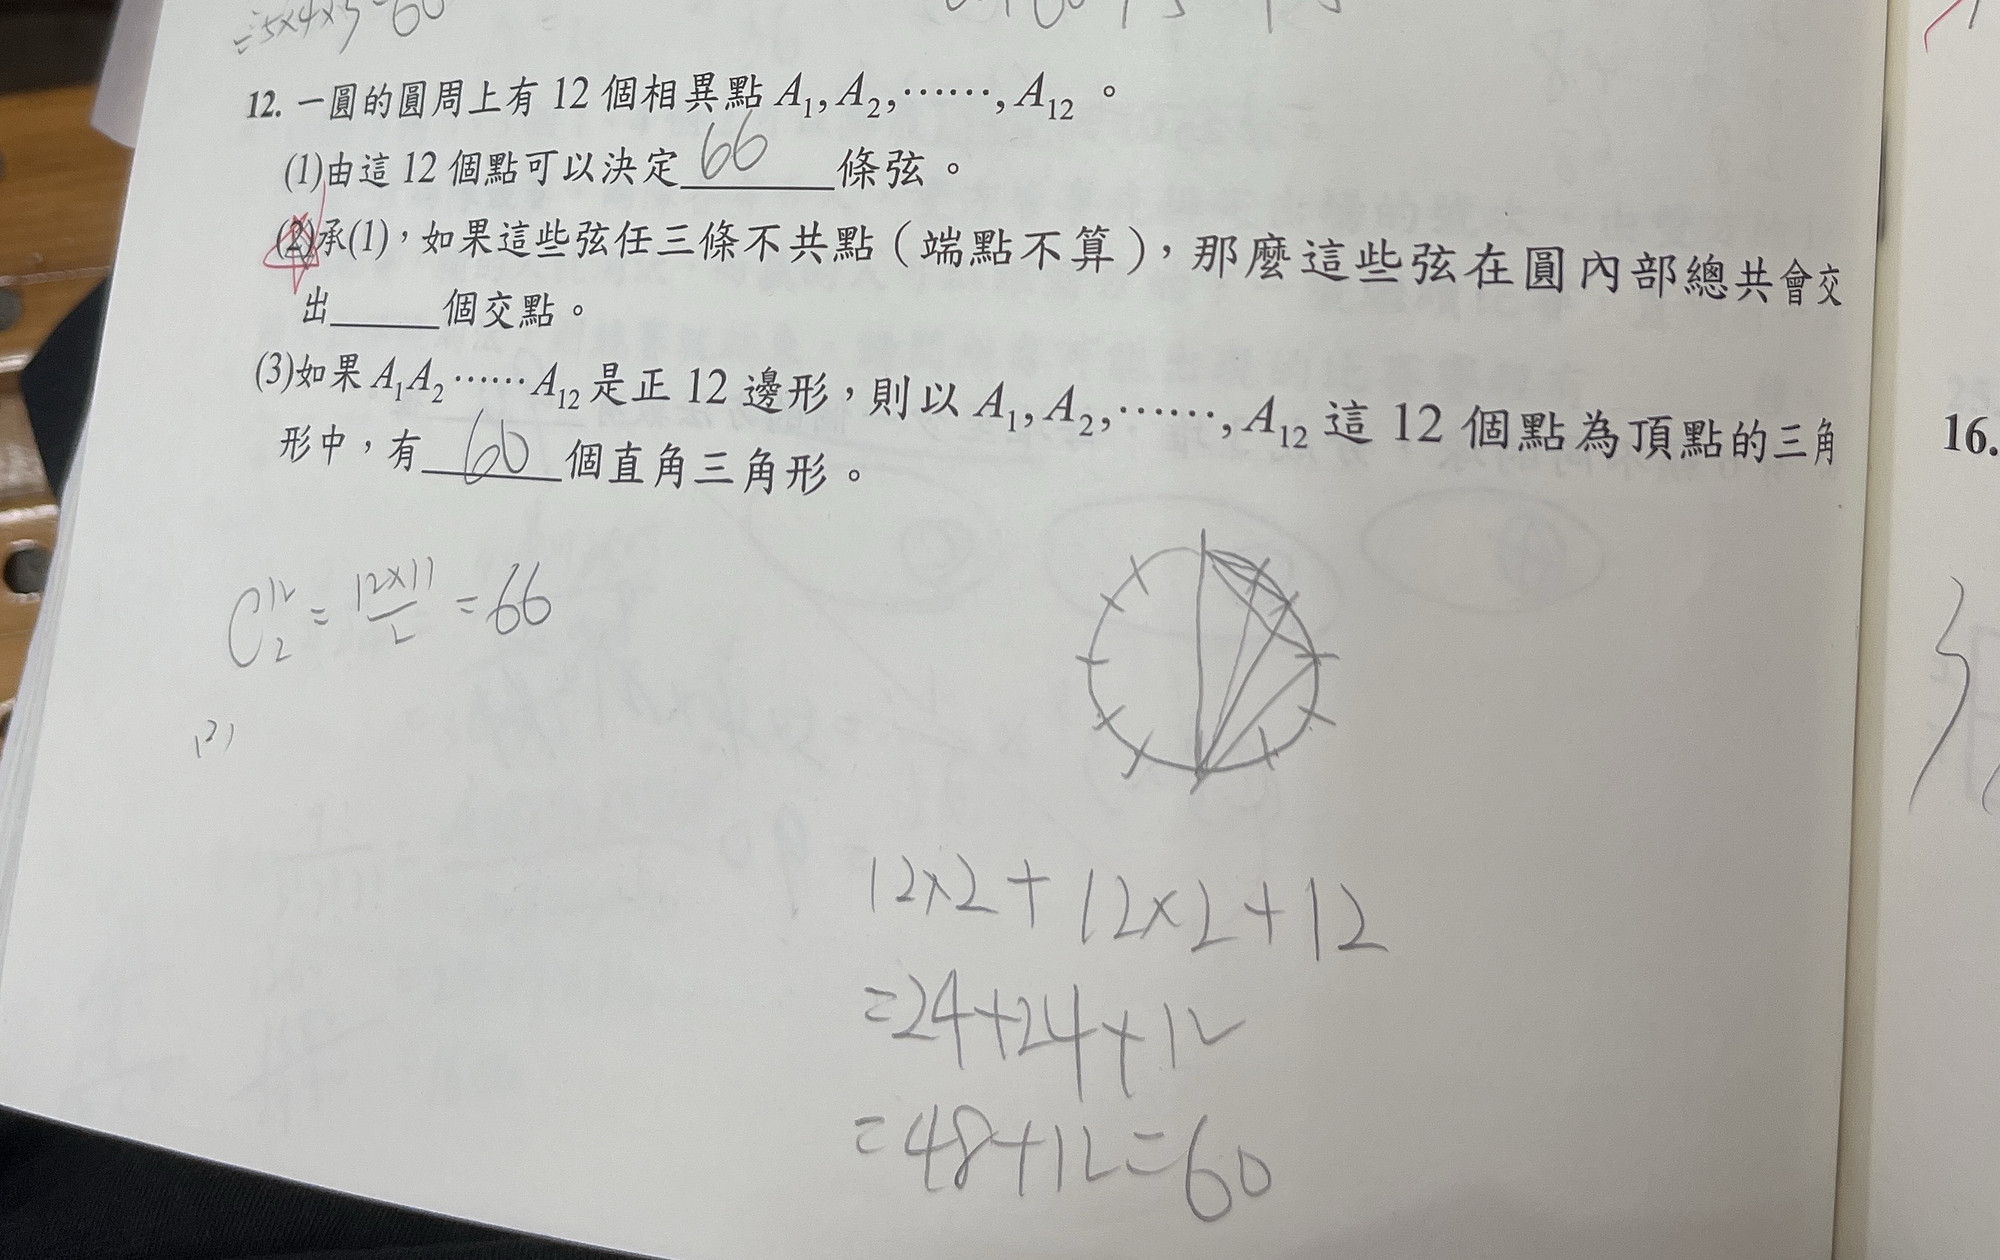 =5×4×3=60
12. 一圓的圓周上有 12 個相異點 A₁, A₂, ……, A₁₂ 。
(1)由這 12 個點可以決定 66 條弦。
(2)承(1)，如果這些弦任三條不共點（端點不算），那麼這些弦在圓內部總共會交
出_____個交點。
(3)如果 A₁A₂ …… A₁₂ 是正 12 邊形，則以 A₁, A₂, ……, A₁₂ 這 12 個點為頂點的三角
形中，有 60 個直角三角形。
16.
C¹²₂ = 12×11/2 = 66
(2)
12×2+12×2+12
=24+24+12
=48+12=60